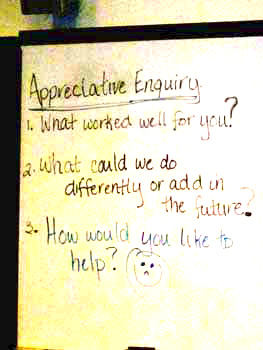 Appreciative Enquiry
1. What worked well for you?
2. What could we do
differently or add in
the future?
3. How would you like to
help?